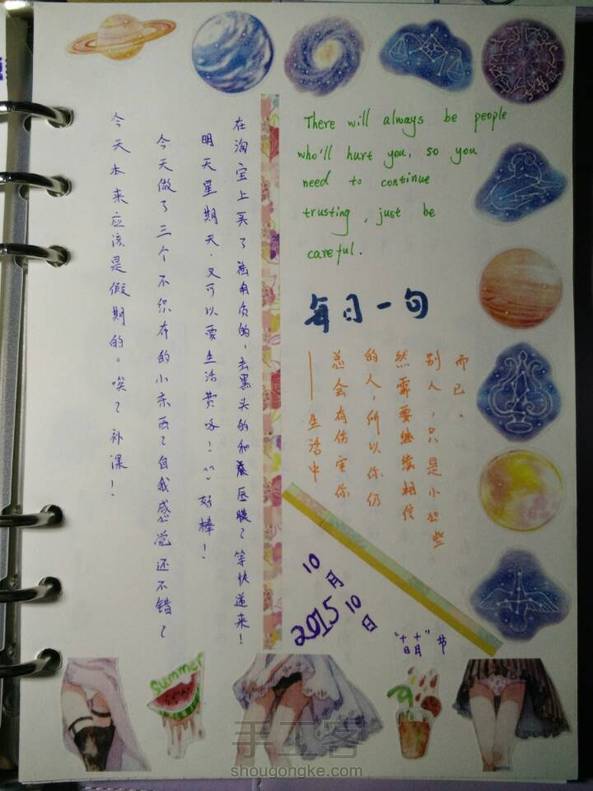 今天本来应该是假期的。唉~补课!
今天做了三个不织布的小东西~自我感觉还不错~
明天星期天,又可以要生活费咯!^^好棒!
在淘宝上买了去角质的,去黑头的和压膜~等快递来!
There will always be people
who'll hurt you, so you
need to continue
trusting, just be
careful.
每日一句
——生活中
总会有伤害你
的人,所以你仍
然需要继续相信
别人,只是小心些
而已。
10月10日
2015
“十月十日”节
summer
手工客
shougongke.com